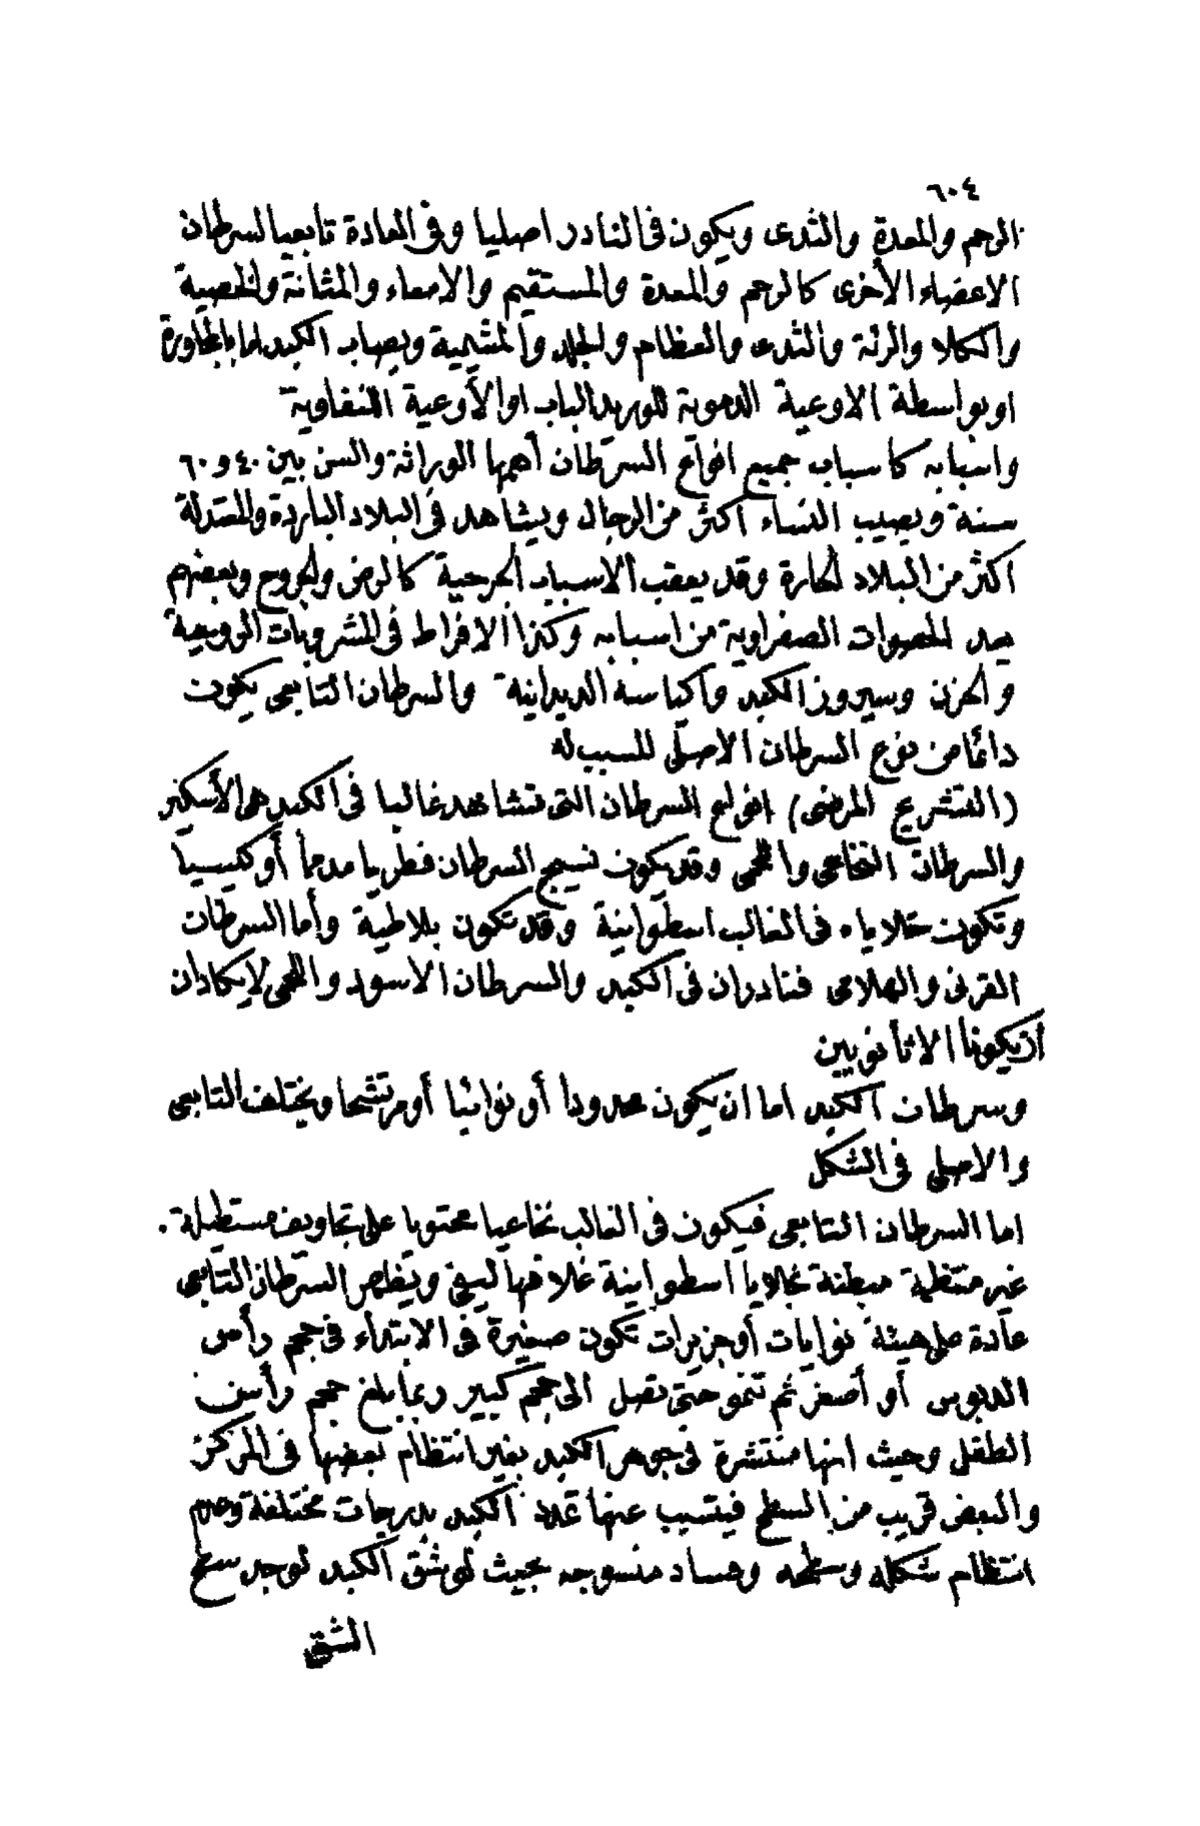 ٦٠٤
الرحم والمعدة والثدى ويكون فى النادر اصليا وفى العادة تابعيا لسرطان
الاعضاء الأخرى كالرحم والمعدة والمستقيم والامعاء والمثانة والخصية
والكلا والرئة والثدى والعظام والجلد والمشيمية ويصاب الكبد اما بالمجاورة
اوبواسطة الاوعية الدموية للوريد الباب اوالأوعية اللنفاوية
واسبابه كاسباب جميع انواع السرطان أهمها الوراثة والسن بين ٤٠ و ٦٠
سنة ويصيب النساء أكثر من الرجال ويشاهد فى البلاد الباردة والمعتدلة
أكثر من البلاد الحارة وقد يعقب الاسباب الجرحية كالرض والجروح وبعضهم
يعد الحصوات الصفراوية من اسبابه وكذا الافراط فى المشروبات الروحية
والحزن وسيروز الكبد واكياسه الديدانية والسرطان التابعى يكون
دائما من نوع السرطان الاصلى المسبب له
(التشريح المرضى) انواع السرطان التى تشاهد غالبا فى الكبد هى الأسكير
والسرطان النخاعى واللحمى وقد يكون نسيج السرطان فطريا مدمجا أوكيسيا
وتكون خلاياه فى الغالب اسطوانية وقد تكون بلاطية وأما السرطان
القرنى والهلامى فنادران فى الكبد والسرطان الاسود واللحمى لايكادان
أن يكونا الا ثانويين
وسرطان الكبد اما ان يكون محدودا أو نوائيا أو مرتشحا ويختلف التابعى
والاصلى فى الشكل
اما السرطان التابعى فيكون فى الغالب نخاعيا محتويا على تجاويف مستطيلة
غير منتظمة مبطنة بخلايا اسطوانية غلافها ليفى ويظهر السرطان التابعى
عادة على هيئة نوايات أوجزيرات تكون صغيرة فى الابتداء فى حجم رأس
الدبوس أو أصغر ثم تنمو حتى تصل الى حجم كبير ربما بلغ حجم رأس
الطفل وحيث انها منتشرة فى جوهر الكبد بغير انتظام بعضها فى المركز
والبعض قريب من السطح فيتسبب عنها تمدد الكبد بدرجات مختلفة وعدم
انتظام شكله وسطحه وفساد منسوجه بحيث لوشق الكبد لوجد سطح
الشق